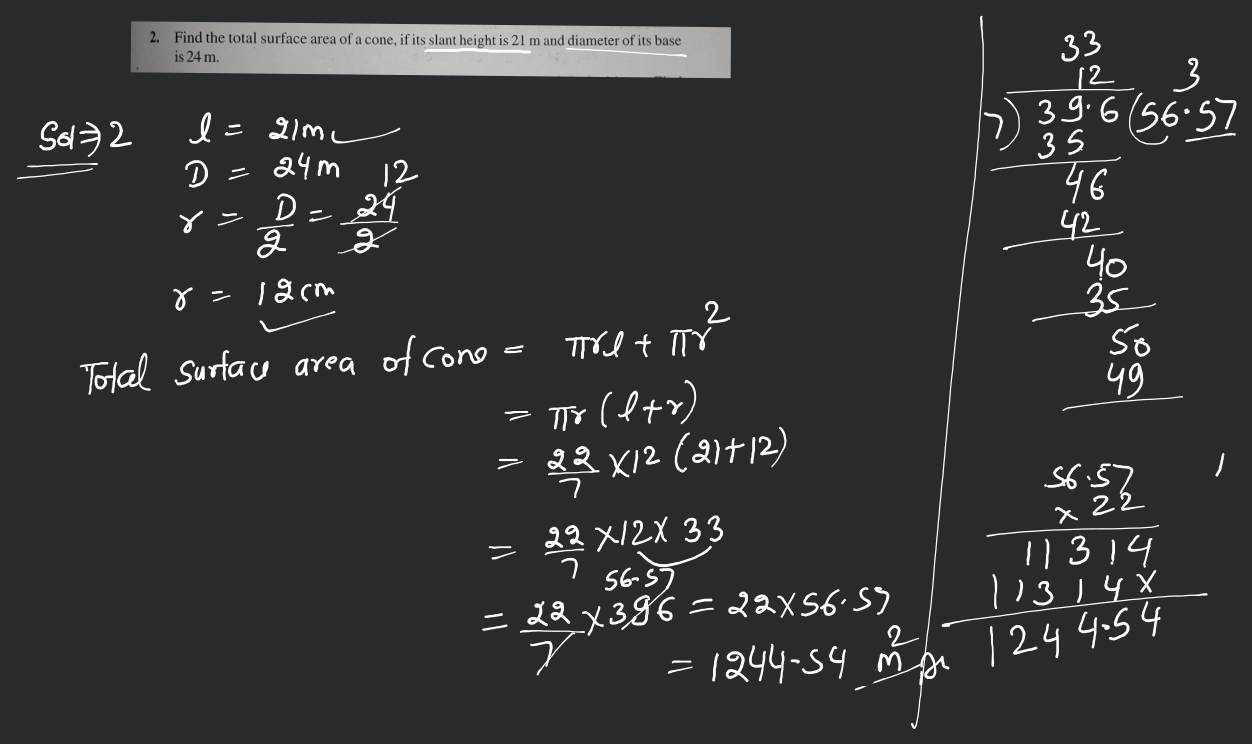 2. Find the total surface area of a cone, if its slant height is 21 m and diameter of its base
is 24 m.
Sol⇒2 l = 21m
D = 24m
12
r = D/2 = 24/2
r = 12cm
Total surface area of cone = πrl + πr²
= πr (l+r)
= 22/7 ×12 (21+12)
= 22/7 ×12× 33
56.57
= 22/7 ×396 = 22×56.57
= 1244.54 m²
33
12
3
7) 39.6 (56.57
35
46
42
40
35
50
49
56.57
× 22
11314
11314×
1244.54